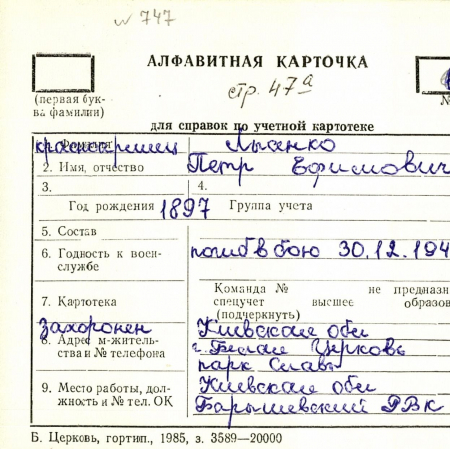 № 747
АЛФАВИТНАЯ КАРТОЧКА
стр. 47а
(первая бук-
ва фамилии)
№
для справок по учетной картотеке
1. Фамилия красноармеец Лысанко
2. Имя, отчество Петр Ефимович
3. 4.
Год рождения 1897 Группа учета
5. Состав
6. Годность к воен-
службе
погиб в бою 30.12.194
Команда № не предназн
7. Картотека спецучет высшее образов
(подчеркнуть)
захоронен Киевская обл
8. Адрес м-житель-
ства и № телефона
г. Белая Церковь
парк Славы
9. Место работы, дол-
жность и № тел. ОК
Киевская обл
Барышевский РВК
Б. Церковь, гортип., 1985, з. 3589—20000